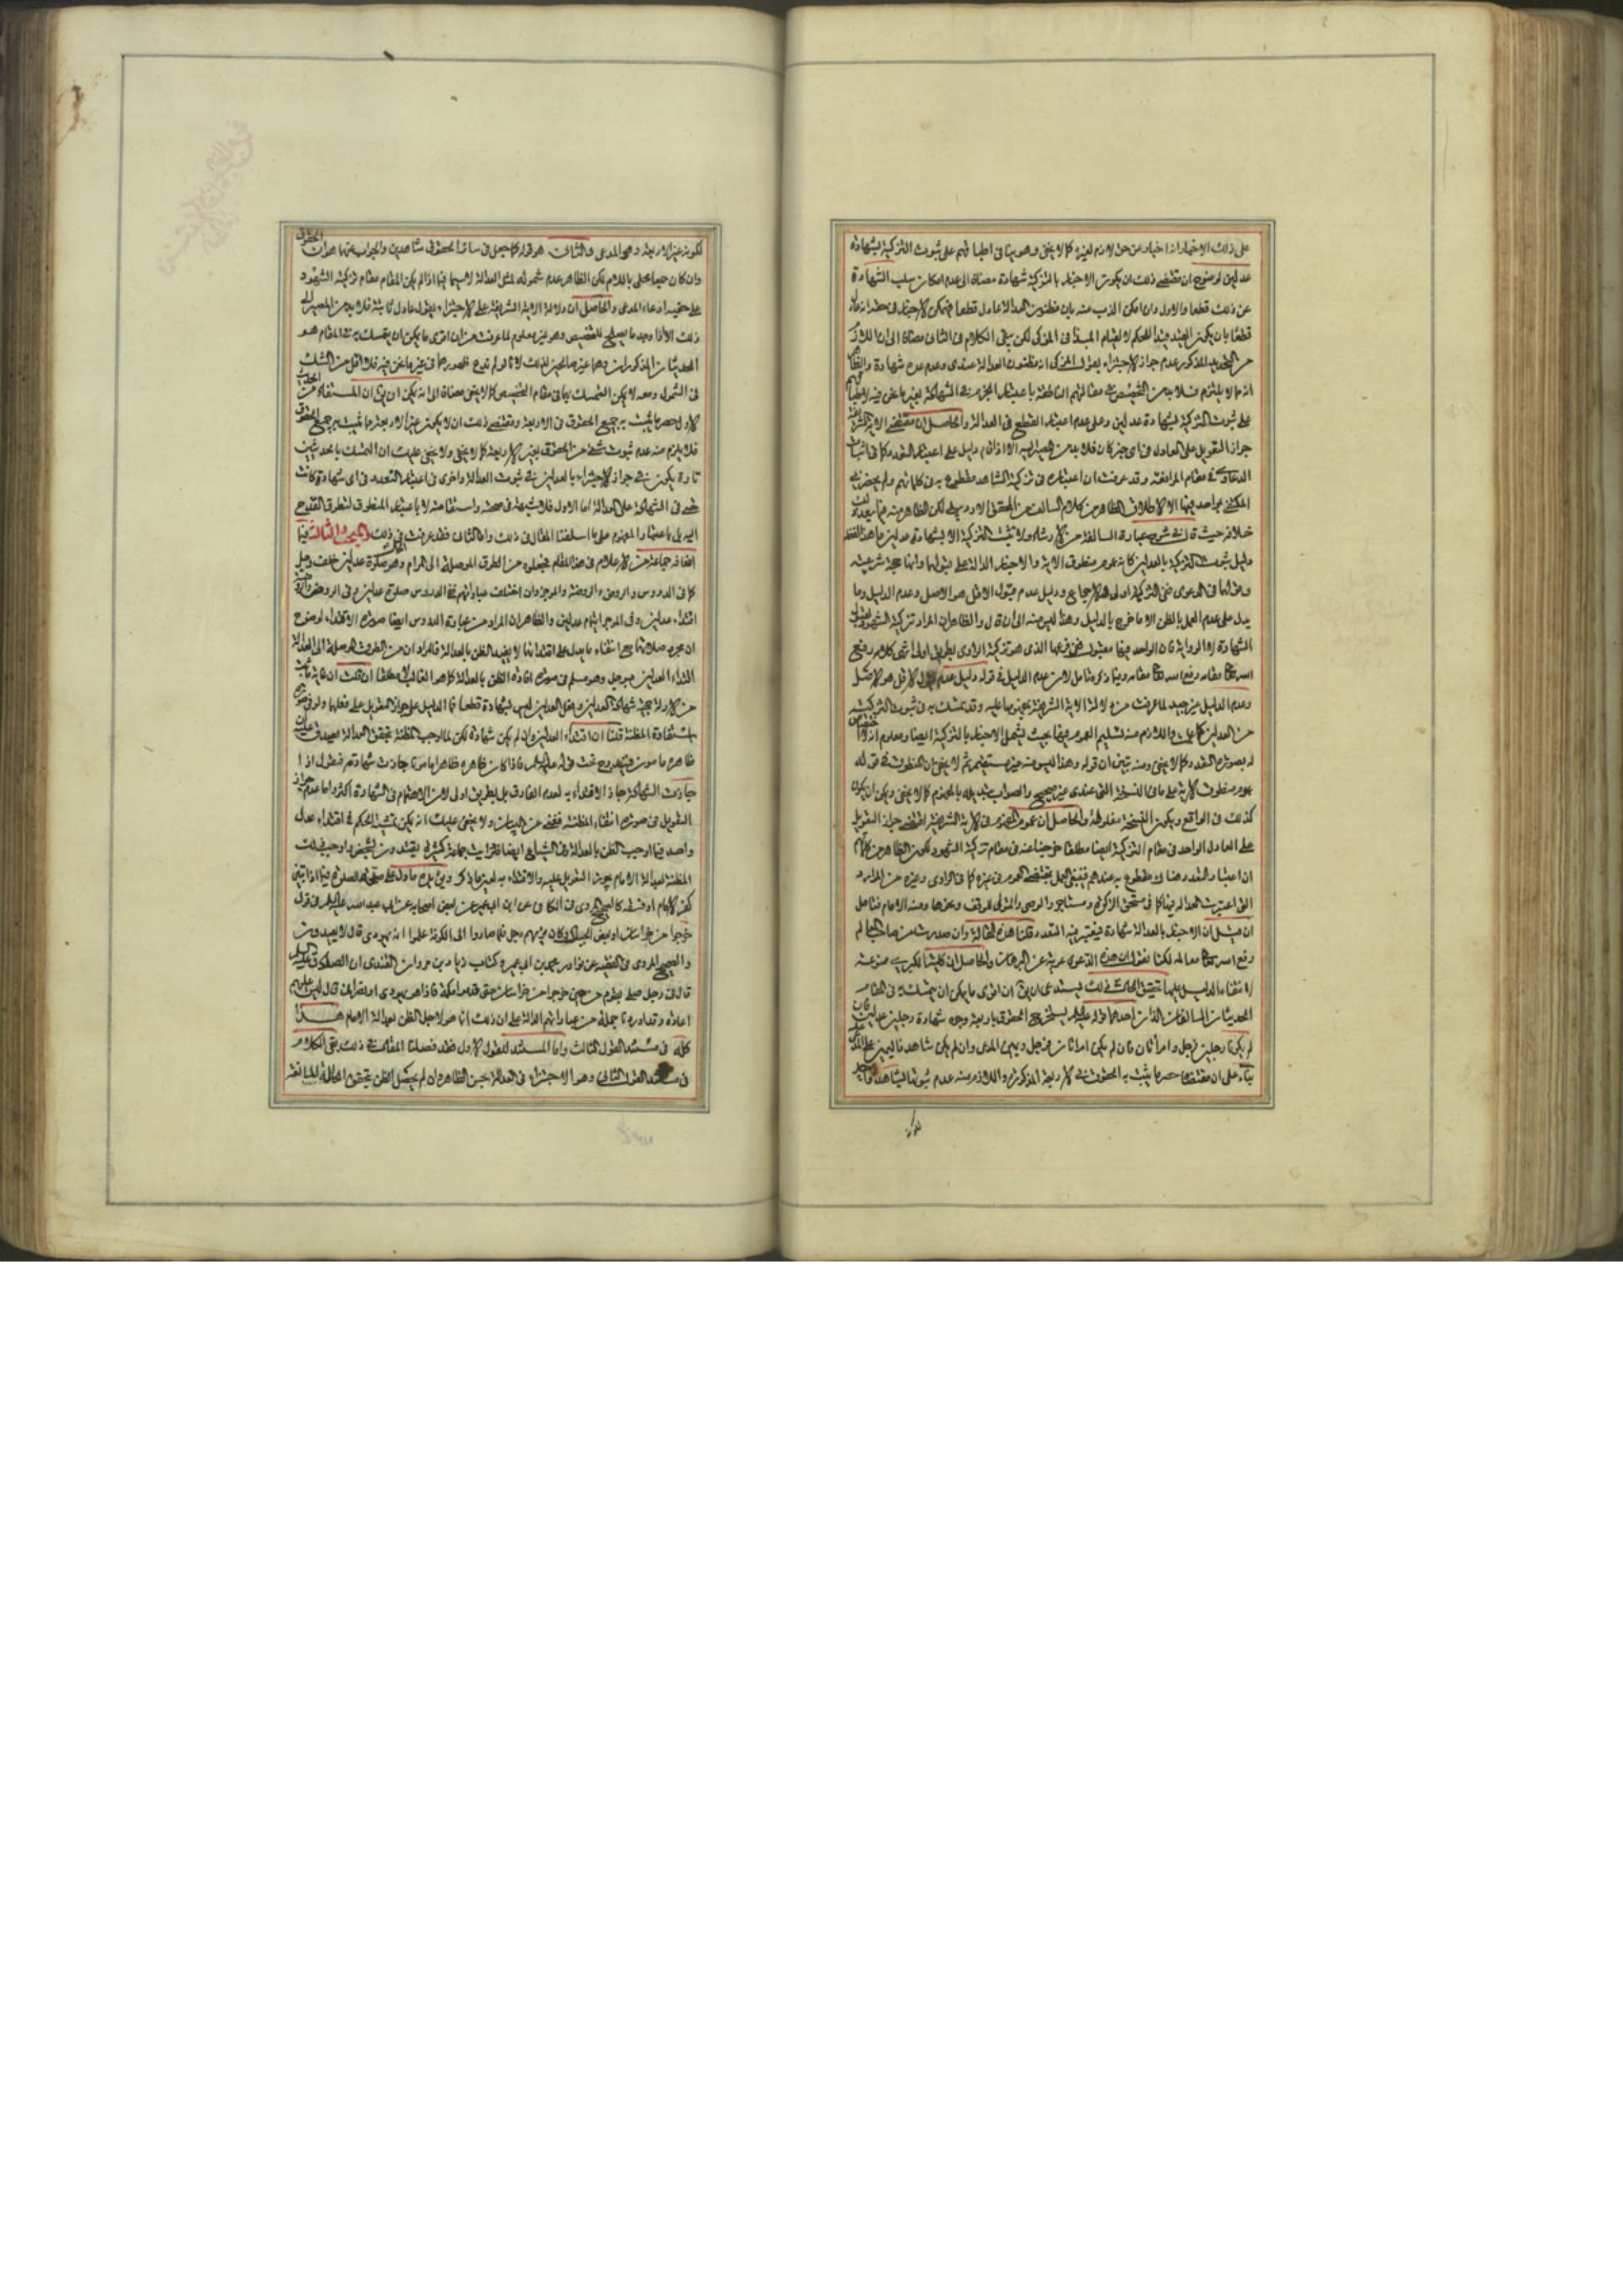 على ذلك الاخبار انه اخبار عن حق لازم لغيره كما لا يخفى وهو ينافى اطباقهم على ثبوت التزكية بشهادة
عدلين لوضوح ان مقتضى ذلك ان يكون الاخبار بالتزكية شهادة مضافا الى عدم امكان سلب الشهادة
عن ذلك قطعا والاول وان امكن الذب عنه بان مظنون العدالة عادل قطعا
قطعا بان يكون القيد قيدا للحكم لا لقيام المبدأ فى المزكى لكن يبقى الكلام فى الثانى مضافا الى ان اللازم
من التحديد المذكور عدم جواز الاجتزاء بقول المزكى انه مظنون العدالة عندى وعدم عده شهادة
على ثبوت التزكية بشهادة عدلين وعلى عدم اعتبار القطع فى العدالة والحاصل ان مقتضى الاية
جواز التعويل على العادل فى اى خبر كان فلا بد من المصير اليه الا اذا قام دليل على اعتبار التعدد كما فى اثبات
الدعاوى فى مقام المرافعة وقد عرفت ان اعتباره فى تزكية الشاهد مقطوع به فى كلماتهم ولم يحضرنى
المكتفى بواحد فيها الا الاطلاق الظاهر من كلام السالف من المحقق الاردبيلى لكن الظاهر منه فيما بعده
خلافه حيث قال فى شرح عبارة السالفة من الارشاد ولا تثبت التزكية الا بشهادة عدلين ما هذا لفظه
دليل ثبوت التزكية بالعدلين كانه عموم منطوق الاية والاخبار الدالة على قبولها وانها حجة شرعية
ودليل عدم قبول الاقل هو الاصل وعدم الدليل وما
يدل على عدم العمل بالظن الا ما خرج بالدليل وهذا ليس منه الى ان قال والظاهر ان المراد تزكية الشهود
الشهادة لا الرواية فان الواحد فيها مقبول ففى فرعها الذى هو تزكية الراوى بطريق اولى انتهى كلامه رفع
الله مقامه وفيما ذكره تامل لان عدم الدليل فى قوله دليل عدم قبول الاقل هو الاصل
وعدم الدليل غير جيد لما عرفت من دلالة الاية الشريفة بعمومها عليه وقد تمسك به فى ثبوت التزكية
من العدلين كما علمت واللازم منه تسليم العموم فيها بحيث يشمل الاخبار بالتزكية ايضا ومعلوم انه لا اختصاص
له بصورة التعدد كما لا يخفى ومنه يتبين ان قوله وهذا ليس منه غير مستقيم ثم لا يخفى ان المنطوق فى قوله
عموم منطوق الاية على ما فى النسخة التى عندى غير صحيح والصواب تبديله بالمفهوم كما لا يخفى ويمكن ان يكون
كذلك فى الواقع ويكون النسخة مغلوطة والحاصل ان عموم المفهوم فى الاية الشريفة اقتضى جواز التعويل
على العادل الواحد فى مقام التزكية ايضا مطلقا خرجنا عنه فى مقام تزكية الشهود لكون الظاهر من كلامهم
ان اعتبار التعدد هناك مقطوع به عندهم فينبغى العمل بمقتضى العموم فى غيره كما فى الراوى وغيره من الموارد
التى اعتبرت العدالة فيها كما فى مستحق الزكوة ومستاجر والوصى والمتولى للوقف ونحوها ومنه الامام فتامل
ان قيل ان الاخبار بالعدالة شهادة فيعتبر فيه التعدد قلنا هذه المقالة وان صدرت من صاحب المعالم
رفع الله معالمه لكنا نقول ان هذه الدعوى عرية عن البرهان والحاصل ان كلية الكبرى ممنوعة
لانتفاء الدليل عليها تحقيق الحال فى ذلك يستدعى ان يقال ان اقوى ما يمكن ان يتمسك به فى المقام
الحديثان السالفان اللذان احدهما قوله عليه السلام يستخرج الحقوق باربعة وجوه شهادة رجلين عدلين فان
لم يكونا رجلين فرجل وامرأتان فان لم يكن امراتان فرجل ويمين المدعى وان لم يكن شاهد فاليمين على المدعى عليه
بناء على ان مقتضاه حصر ما يثبت به الحقوق فى الاربعة المذكورة واللازم منه عدم ثبوتها بشاهد واحد
لكونه
لكونه غير الاربعة وهو المدعى والثانى هو قوله كما جعل فى سائر الحقوق شاهدين والجواب عنهما هو ان الحقوق
وان كان جمعا محلى باللام لكن الظاهر عدم شموله لمثل العدالة لا سيما فيما اذا لم يكن المقام مقام تزكية الشهود
على حقية ادعاء المدعى والحاصل ان دلالة الاية الشريفة على الاجتزاء بقول عادل ثابتة فلا بد من المصير الى
ذلك الا اذا وجد ما يصلح للتخصيص وهو غير معلوم لما عرفت من ان اقوى ما يمكن ان يتمسك به فى المقام هو
الحديثان المذكوران وهما غير صالحين لذلك لانا لو لم ندع ظهورهما فى غير ما نحن فيه فلا اقل من الشك
فى الشمول ومعه لا يمكن التمسك بهما فى مقام التخصيص كما لا يخفى مضافا الى انه يمكن ان يقال ان المستفاد من الحديث
الاول حصر ما يثبت به جميع الحقوق فى الاربعة ومقتضى ذلك ان لا يكون غير الاربعة مما يثبت به جميع الحقوق
فلا يلزم منه عدم ثبوت شىء من الحقوق بغير الاربعة كما لا يخفى ولا يخفى عليك ان التمسك بالحديثين
تارة يكون فى جواز الاجتزاء بالعدلين فى ثبوت العدالة واخرى فى اعتبار التعدد فى اى شهادة كانت
حتى فى الشهادة على العدالة اما الاول فلا شبهة فى صحته واستقامته لا باعتبار المنطوق لتطرق القدح
اليه بل باعتبار المفهوم على ما اسلفنا المقال فى ذلك واما الثانى فقد عرفت الحال فى ذلك المبحث الثالث فيما
افاده جماعة من الاعلام فى هذا المقام فجعلوه من الطرق الموصلة الى المرام وهو صلوة عدلين خلف رجل
كما فى الدروس والروض والروضة والموجز وان اختلفت عباراتهم ففى الدروس صلوة عدلين وفى الروض والروضة
اقتداء عدلين وفى الموجز ايتمام عدلين والظاهر ان المراد من عبارة الدروس ايضا صورة الاقتداء لوضوح
ان مجرد صلاتهما مع انتفاء ما يدل على اقتدائهما لا يفيد الظن بالعدالة فالمراد ان من الطرق الموصلة الى العدالة
اقتداء العدلين برجل وهو مسلم فى صورة افادة الظن بالعدالة كما هو الغالب لا مطلقا ان قلت ان غاية ما ثبت
من الادلة حجية شهادة العدلين وفعل العدلين ليس بشهادة قطعا فما الدليل على جواز التعويل على فعلهما ولو فى صورة
استفادة المظنة قلنا ان اقتداء العدلين وان لم يكن شهادة لكن لما اوجب المظنة بتحقق العدالة يصدق عليه ان
ظاهره مامون فيندرج تحت قوله عليه السلام فاذا كان ظاهره ظاهرا مامونا جازت شهادته فنقول اذا
جازت الشهادة جاز الاقتداء به لعدم الفارق بل بطريق اولى لان الاهتمام فى الشهادة اكثر واما عدم جواز
التعويل فى صورة انتفاء المظنة فغنى عن البيان ولا يخفى عليك انه يمكن تمشية الحكم فى اقتداء عدل
واحد فيما اوجب الظن بالعدالة وفى الشياع ايضا فلو رايت جماعة كثيرة يقتدون بشخص واوجب ذلك
المظنة بعدالة الامام يجوز التعويل عليه والاقتداء به لعين ما ذكر وبه يلوح ما دل على صحة الصلوة فيما اذا تبين
كفر الامام او فسقه كالصحيح المروى فى الكافى عن ابن ابى عمير عن بعض اصحابه عن ابى عبد الله عليه السلام فى قوم
خرجوا من خراسان او بعض الجبال وكان يؤمهم رجل فلما صاروا الى الكوفة علموا انه يهودى قال لا يعيدون
والصحيح المروى فى الفقيه عن نوادر محمد بن ابى عمير وكتاب زياد بن مروان القندى ان الصادق عليه السلام
قال فى رجل صلى بقوم من حين خرجوا من خراسان حتى قدموا مكة فاذا هو يهودى او نصرانى قال ليس عليهم
اعادة وقد اوردنا جملة من عباراتهم الدالة على ان ذلك انما هو لاجل الظن بعدالة الامام هذا
كله فى مستند القول الثالث واما المستند للقول الاول فقد فصلنا المقال فى ذلك بقى الكلام
فى مستند القول الثانى وهو الاجتزاء فى العدالة بحسن الظاهر وان لم يحصل الظن بتحقق الحالة المانعة